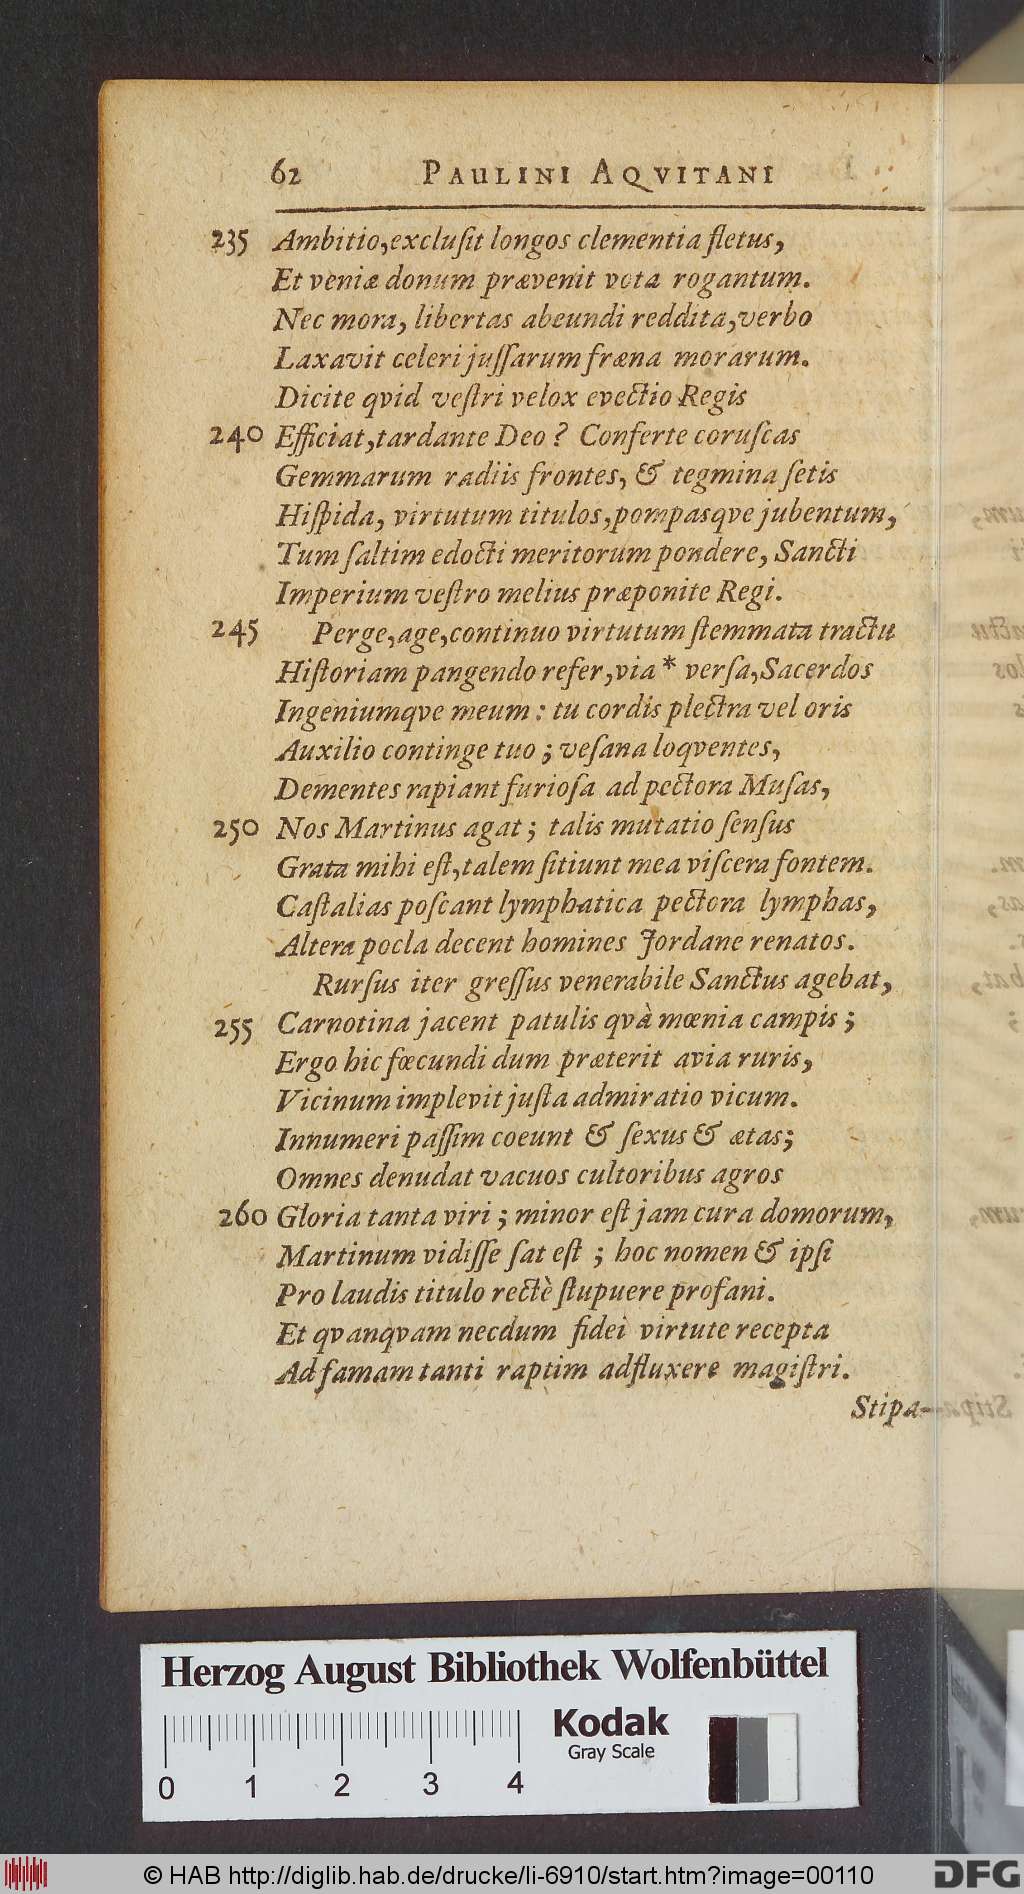 62 PAULINI AQVITANI
235 Ambitio, exclusit longos clementia fletus,
Et veniæ donum prævenit vota rogantum.
Nec mora, libertas abeundi reddita, verbo
Laxavit celeri jussarum fræna morarum.
Dicite qvid vestri velox evectio Regis
240 Efficiat, tardante Deo? Conferte coruscas
Gemmarum radiis frontes, & tegmina setis
Hispida, virtutum titulos, pompasqve jubentum,
Tum saltim edocti meritorum pondere, Sancti
Imperium vestro melius præponite Regi.
245 Perge, age, continuo virtutum stemmata tractu
Historiam pangendo refer, via * versa, Sacerdos
Ingeniumqve meum: tu cordis plectra vel oris
Auxilio continge tuo; vesana loqventes,
Dementes rapiant furiosa ad pectora Musas,
250 Nos Martinus agat; talis mutatio sensus
Grata mihi est, talem sitiunt mea viscera fontem.
Castalias poscant lymphatica pectora lymphas,
Altera pocla decent homines Jordane renatos.
Rursus iter gressus venerabile Sanctus agebat,
255 Carnotina jacent patulis qvà mœnia campis;
Ergo hic fœcundi dum præterit avia ruris,
Vicinum implevit justa admiratio vicum.
Innumeri passim coeunt & sexus & ætas;
Omnes denudat vacuos cultoribus agros
260 Gloria tanta viri; minor est jam cura domorum,
Martinum vidisse sat est; hoc nomen & ipsi
Pro laudis titulo rectè stupuere profani.
Et qvanqvam necdum fidei virtute recepta
Ad famam tanti raptim adfluxere magistri.
Stipa-
Herzog August Bibliothek Wolfenbüttel
Kodak
Gray Scale
0 1 2 3 4
© HAB http://diglib.hab.de/drucke/li-6910/start.htm?image=00110
DFG